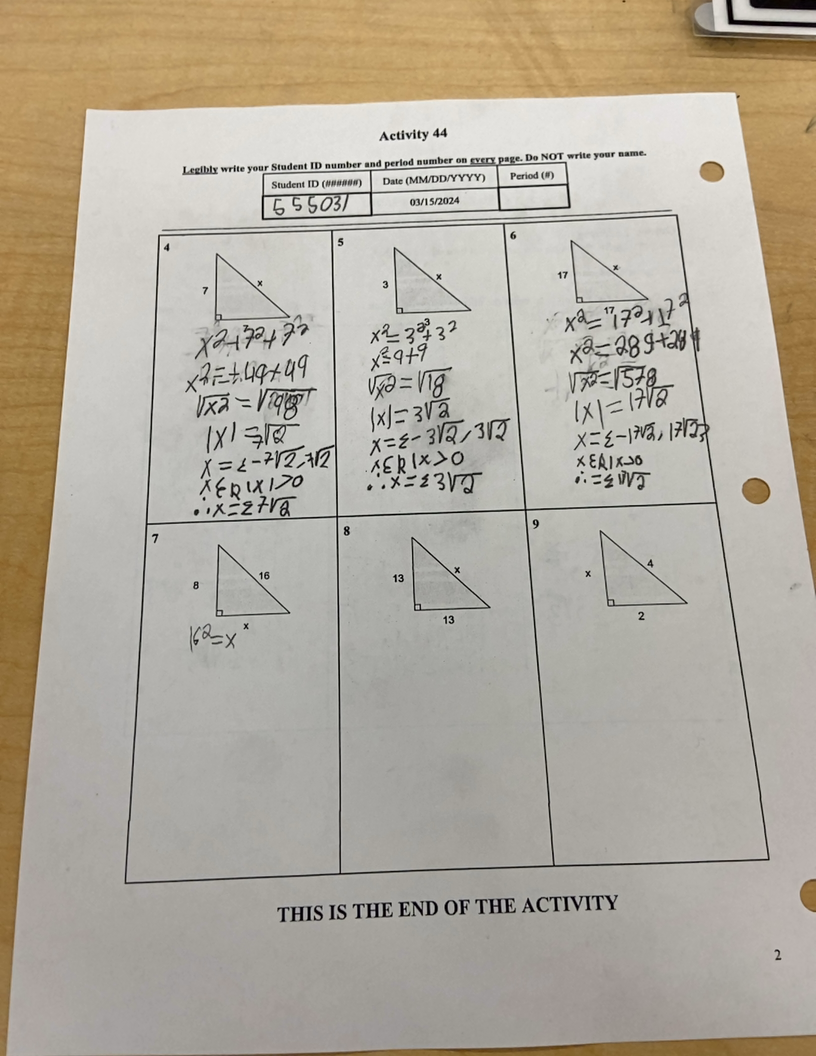 Activity 44
Legibly write your Student ID number and period number on every page. Do NOT write your name.
Student ID (######) Date (MM/DD/YYYY) Period (#)
555031 03/15/2024
4
7
x
7
x²+7²+7²
x²=49+49
√x2 = √98
|x| = 7√2
x = {-7√2, 7√2
x∈ℝ|x>0
∴x={7√2
5
3
x
3
x²=3²+3²
x²=9+9
√x2=√18
|x|=3√2
x={-3√2, 3√2
x∈ℝ|x>0
∴x={3√2
6
17
x
17
x²=17²+17²
x²=289+289
√x2=√578
|x|=17√2
x={-17√2, 17√2}
x∈ℝ|x>0
∴={17√2
7
8
16
x
16²=x
8
13
x
13
9
x
4
2
THIS IS THE END OF THE ACTIVITY
2